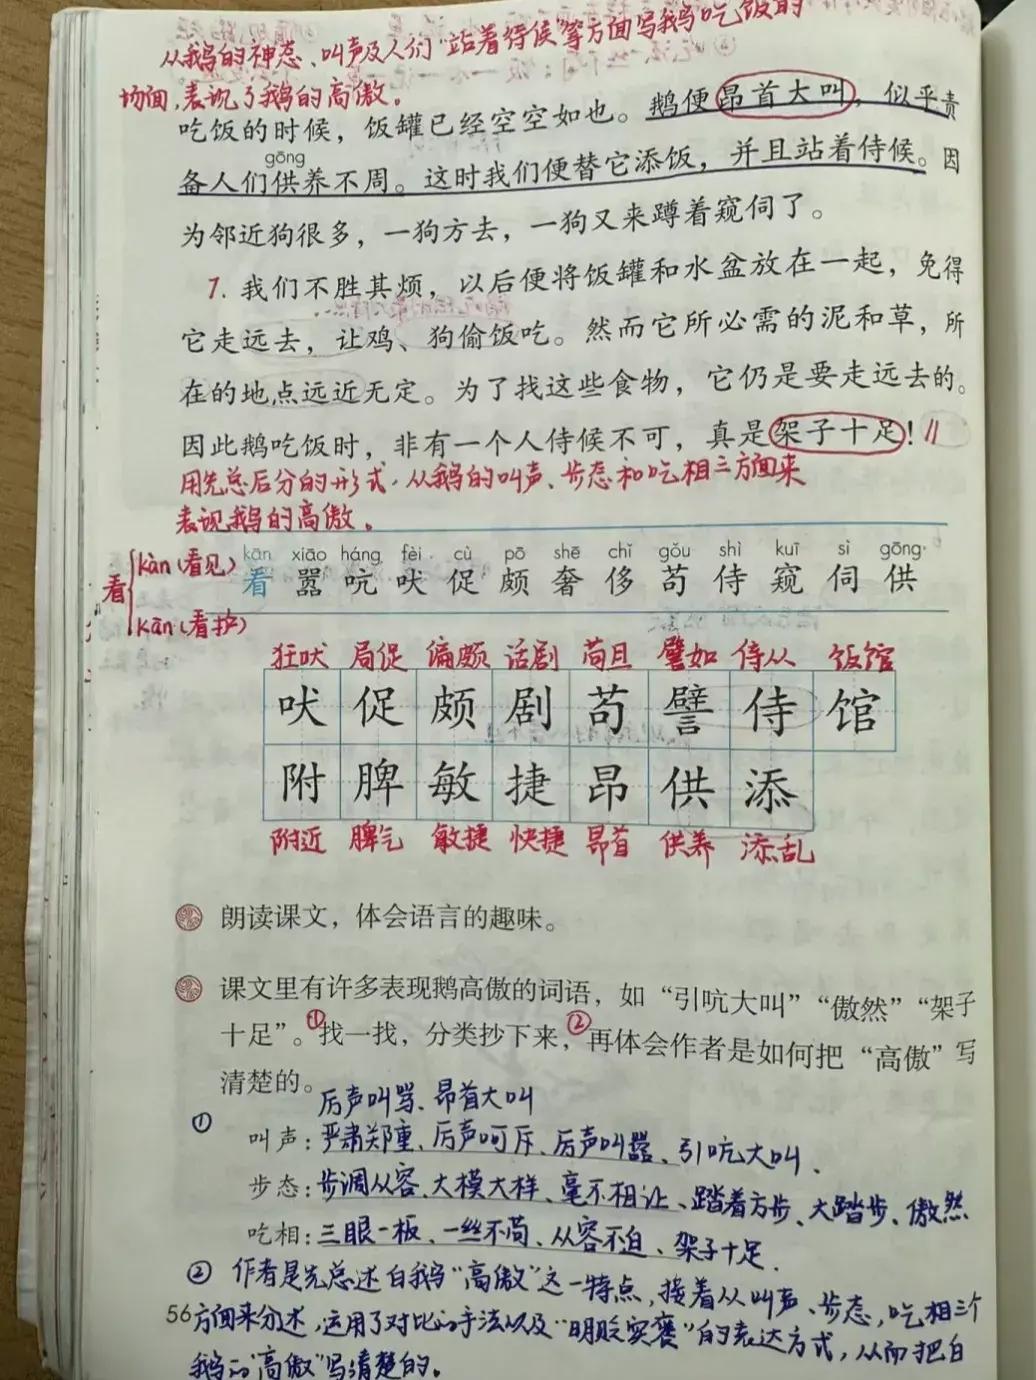 从鹅的神态、叫声及人们“站着侍候”等方面写鹅吃饭的
场面,表现了鹅的高傲。
吃饭的时候，饭罐已经空空如也。鹅便昂首大叫，似乎责
gōng
备人们供养不周。这时我们便替它添饭，并且站着侍候。因
为邻近狗很多，一狗方去，一狗又来蹲着窥伺了。
7. 我们不胜其烦，以后便将饭罐和水盆放在一起，免得
它走远去，让鸡、狗偷饭吃。然而它所必需的泥和草，所
在的地点远近无定。为了找这些食物，它仍是要走远去的。
因此鹅吃饭时，非有一个人侍候不可，真是架子十足！//
用先总后分的形式,从鹅的叫声、步态和吃相三方面来
表现鹅的高傲。
kān xiāo háng fèi cù pō shē chǐ gǒu shì kuī sì gōng
看 嚣 吭 吠 促 颇 奢 侈 苟 侍 窥 伺 供
看
kàn(看见)
kān(看护)
狂吠 局促 偏颇 话剧 苟且 譬如 侍从 饭馆
吠 促 颇 剧 苟 譬 侍 馆
附 脾 敏 捷 昂 供 添
附近 脾气 敏捷 快捷 昂首 供养 添乱
朗读课文，体会语言的趣味。
课文里有许多表现鹅高傲的词语，如“引吭大叫”“傲然”“架子
十足”。①找一找，分类抄下来，②再体会作者是如何把“高傲”写
清楚的。
厉声叫骂、昂首大叫
①
叫声：严肃郑重、厉声呵斥、厉声叫嚣、引吭大叫.
步态：步调从容、大模大样、毫不相让、踏着方步、大踏步、傲然
吃相：三眼一板、一丝不苟、从容不迫、架子十足.
② 作者是先总述白鹅“高傲”这一特点,接着从叫声、步态,吃相三个
56方面来分述,运用了对比的手法以及“明贬实褒”的表达方式,从而把白
鹅的“高傲”写清楚的。